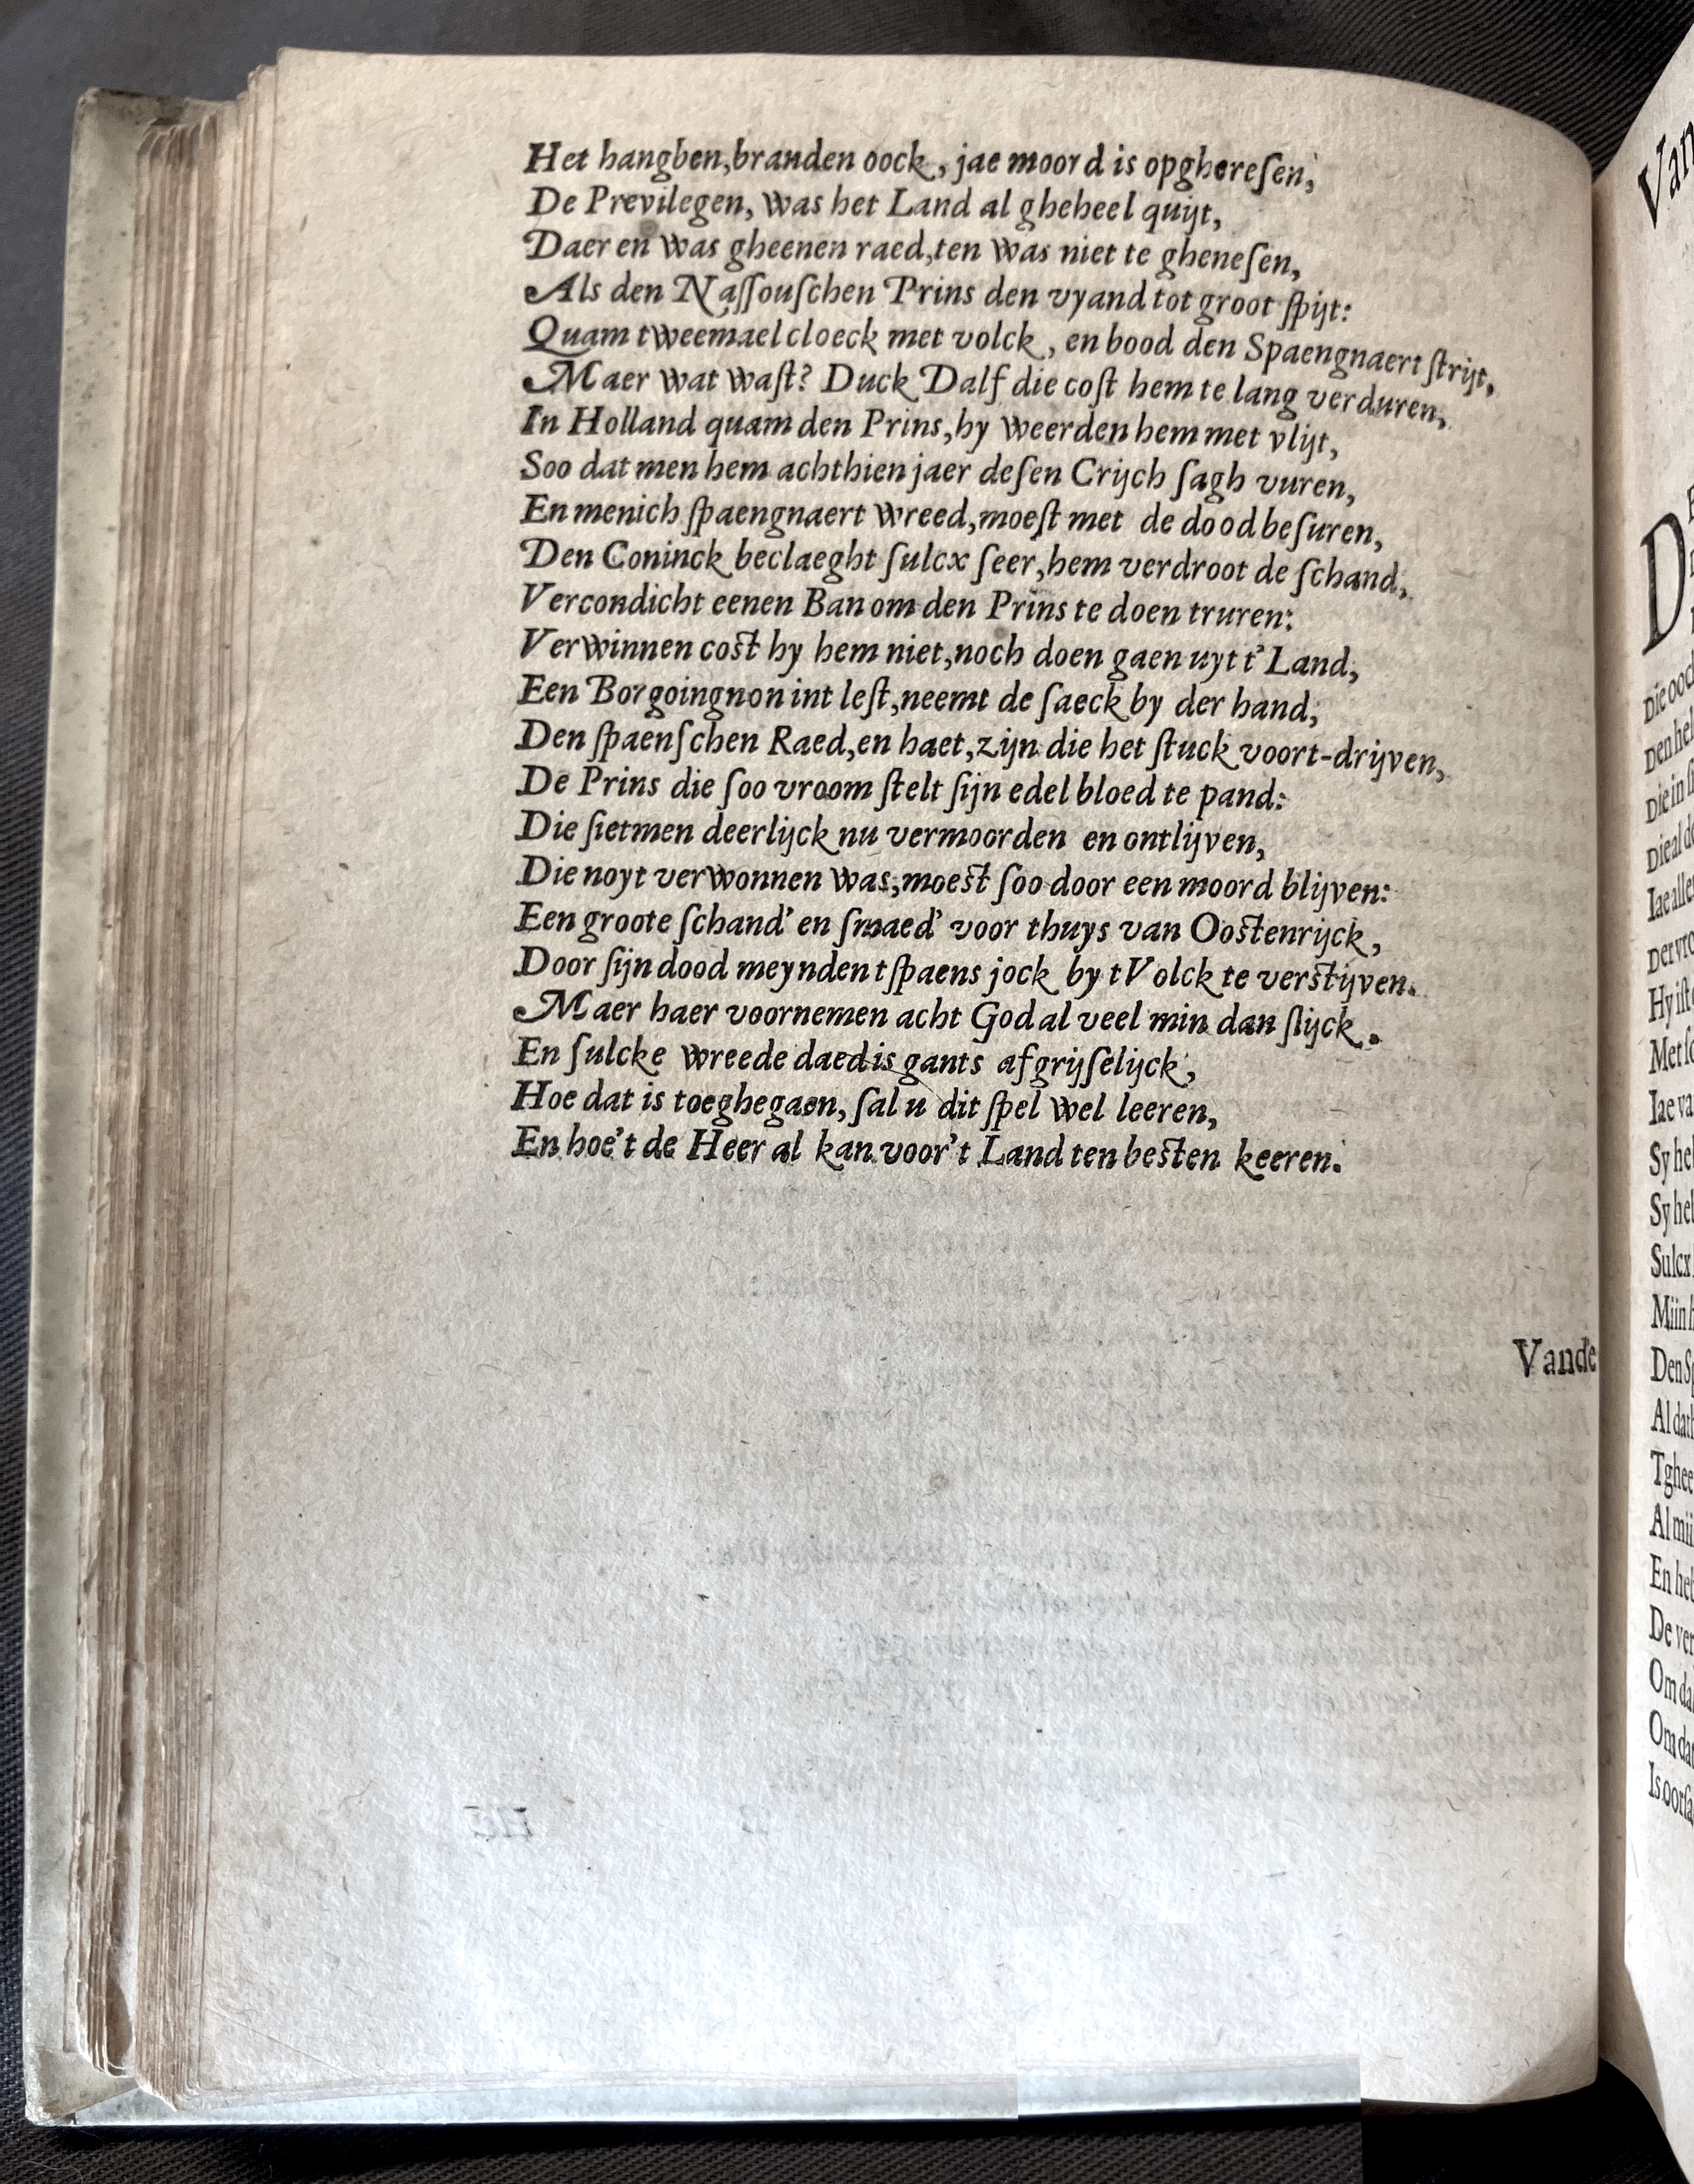 Het hangben,branden oock, jae moord is opghereſen,
De Previlegen, was het Land al gheheel quijt,
Daer en was gheenen raed,ten was niet te gheneſen,
Als den Naſſouſchen Prins den vyand tot groot ſpijt:
Quam tweemael cloeck met volck, en bood den Spaengnaert ſtrijt,
Maer wat waſt? Duck Dalf die coſt hem te lang verduren,
In Holland quam den Prins,hy weerden hem met vlijt,
Soo dat men hem achthien jaer deſen Crijch ſagh vuren,
En menich ſpaengnaert wreed,moeſt met de dood beſuren,
Den Coninck beclaeght ſulcx ſeer,hem verdroot de ſchand,
Vercondicht eenen Ban om den Prins te doen truren:
Verwinnen coſt hy hem niet,noch doen gaen uyt t' Land,
Een Borgoingnon int leſt,neemt de ſaeck by der hand,
Den ſpaenſchen Raed,en haet,zijn die het ſtuck voort-drijven,
De Prins die ſoo vroom ſtelt ſijn edel bloed te pand:
Die ſietmen deerlijck nu vermoorden en ontlijven,
Die noyt verwonnen was,moeſt ſoo door een moord blijven:
Een groote ſchand' en ſmaed' voor thuys van Ooſtenrijck,
Door ſijn dood meynden tſpaens jock by tVolck te verſtijven.
Maer haer voornemen acht God al veel min dan ſlijck.
En ſulcke wreede daed is gants afgrijſelijck,
Hoe dat is toeghegaen, ſal u dit ſpel wel leeren,
En hoe't de Heer al kan voor't Land ten beſten keeren.
Vande